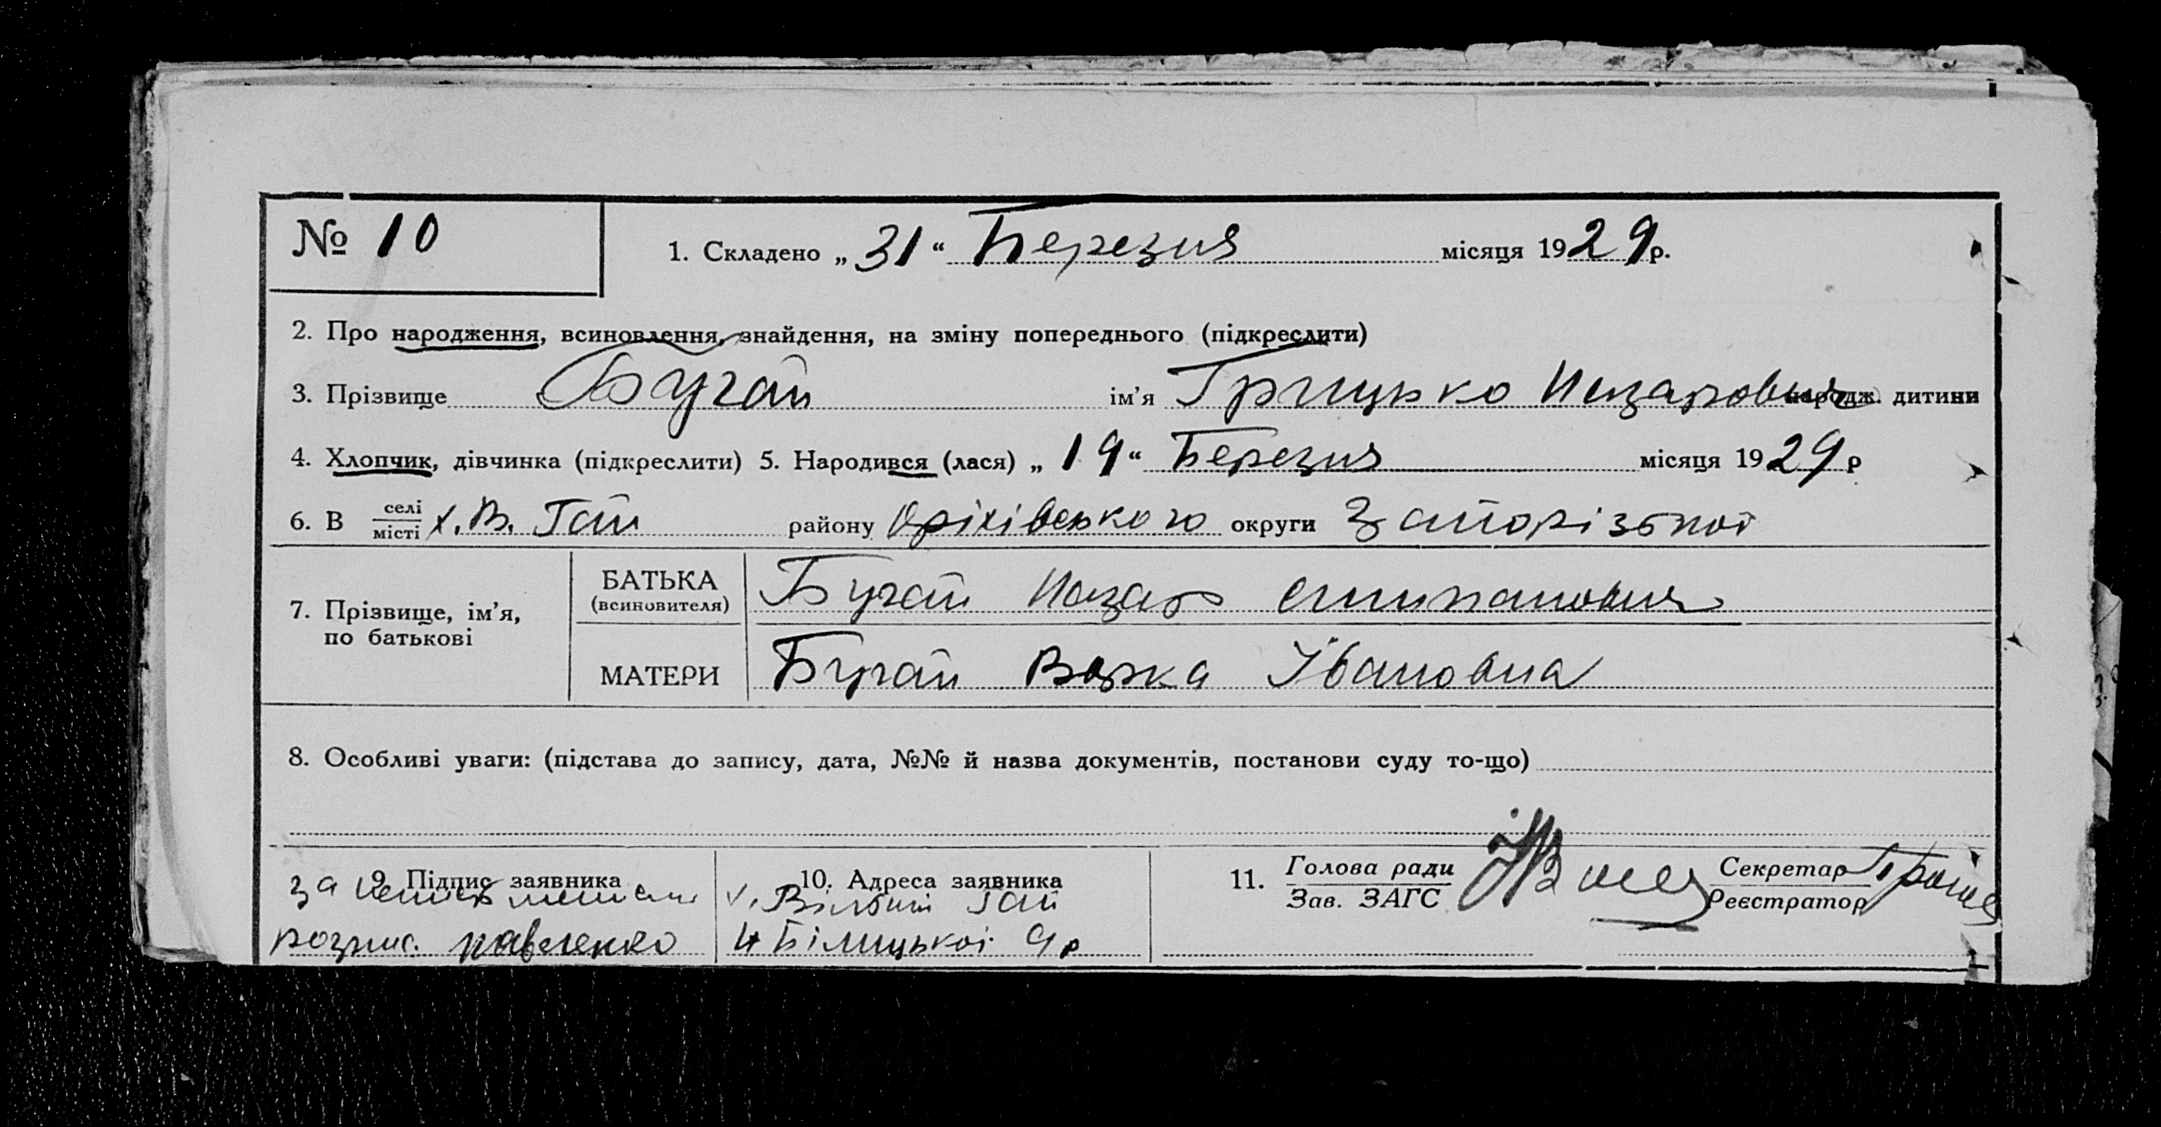 № 10
1. Складено „31“ Березня місяця 1929 р.
2. Про народження, всиновлення, знайдення, на зміну попереднього (підкреслити)
3. Прізвище Бугай ім’я Грицько Назарович народж. дитини
4. Хлопчик, дівчинка (підкреслити) 5. Народився (лася) „19“ Березня місяця 1929 р
6. В селі місті х. В. Гай району Оріхівського округи Запорізької
7. Прізвище, ім’я, по батькові
БАТЬКА (всиновителя) Бугай Назар
МАТЕРИ Бугай Варка Івановна
8. Особливі уваги: (підстава до запису, дата, №№ й назва документів, постанови суду то-що)
9. Підпис заявника
за
розпис. Павленко
10. Адреса заявника
х. Вільний Гай
Білицької
11. Голова ради
Зав. ЗАГС
Секретар
Реєстратор